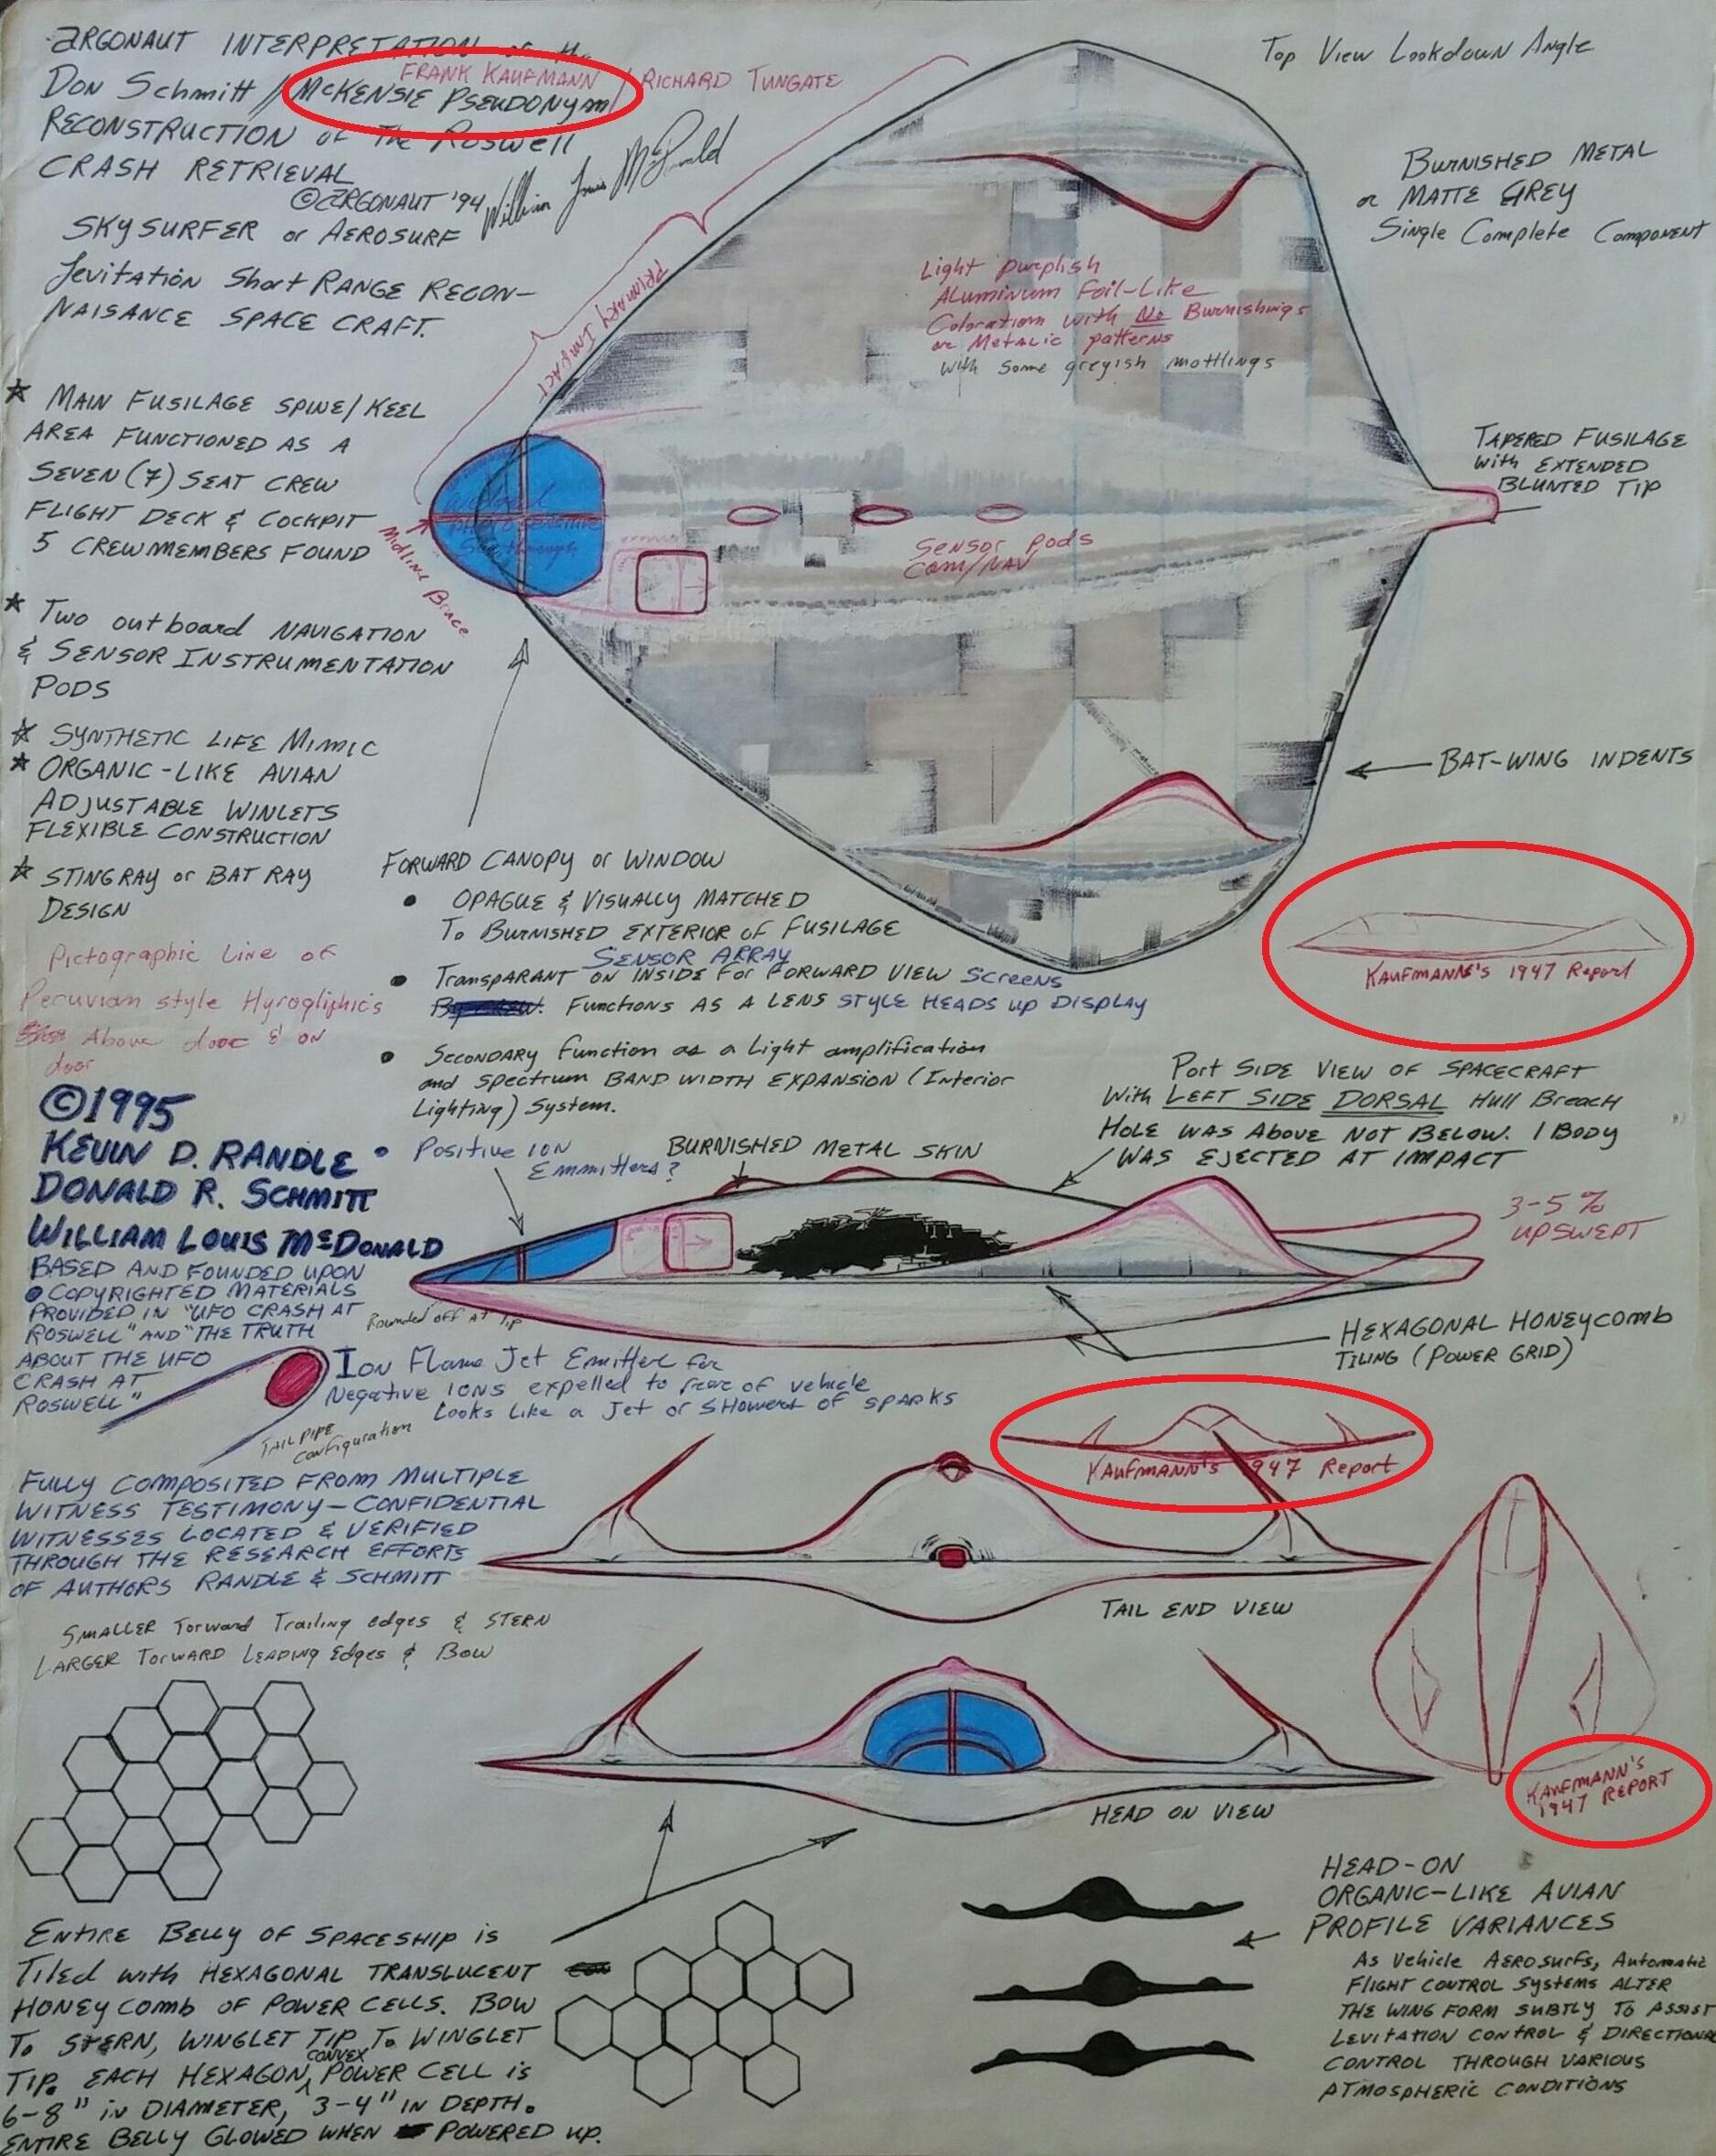 ARGONAUT INTERPRETATION of the
FRANK KAUFMANN / RICHARD TUNGATE
Don Schmitt / McKENSIE PSEUDONYM
RECONSTRUCTION of The Roswell
CRASH RETRIEVAL
© ARGONAUT '94 William Louis McDonald
SKYSURFER or AEROSURF
Levitation Short RANGE RECON-
NAISANCE SPACE CRAFT.
★ MAIN FUSILAGE SPINE/KEEL
AREA FUNCTIONED AS A
SEVEN (7) SEAT CREW
FLIGHT DECK & COCKPIT
5 CREWMEMBERS FOUND
★ Two outboard NAVIGATION
& SENSOR INSTRUMENTATION
PODS
★ SYNTHETIC LIFE MIMIC
★ ORGANIC-LIKE AVIAN
ADJUSTABLE WINLETS
FLEXIBLE CONSTRUCTION
★ STINGRAY or BAT RAY
DESIGN
Pictographic Line of
Peruvian style Hyrogliphics
Above door & on
door
Top View Lookdown Angle
BURNISHED METAL
or MATTE GREY
Single Complete Component
PRIMARY IMPACT
Light purplish
ALuminum Foil-Like
Coloration with No Burnishings
or Metalic patterns
with some greyish mottlings
TAPERED FUSILAGE
with EXTENDED
BLUNTED TIP
Midline Brace
Sensor pods
Com/NAV
BAT-WING INDENTS
FORWARD CANOPY or WINDOW
• OPAGUE & VISUALLY MATCHED
To BURNISHED EXTERIOR OF FUSILAGE
SENSOR ARRAY
• TRANSPARANT ON INSIDE FOR FORWARD VIEW Screens
By crew. Functions AS A LENS STYLE HEADS up DISPLAY
• Secondary function as a Light amplification
and spectrum BAND WIDTH EXPANSION (Interior
Lighting) System.
KAUFMANN'S 1947 Report
Port SIDE VIEW OF SPACECRAFT
With LEFT SIDE DORSAL Hull Breach
HOLE WAS ABOVE NOT BELOW. 1 BODY
WAS EJECTED AT IMPACT
©1995
KEVIN D. RANDLE
DONALD R. SCHMITT
WILLIAM LOUIS McDONALD
BASED AND FOUNDED UPON
COPYRIGHTED MATERIALS
PROVIDED IN "UFO CRASH AT
ROSWELL" AND "THE TRUTH
ABOUT THE UFO
CRASH AT
ROSWELL"
• Positive ION
Emmitters?
BURNISHED METAL SKIN
3-5%
UPSWEPT
Rounded off AT Tip
HEXAGONAL HONEYcomb
TILING (POWER GRID)
Ion Flame Jet Emitter for
Negative IONS expelled to rear of vehicle
Looks Like a Jet or SHowers of SPARKS
TAIL PIPE
configuration
KAUFMANN'S 1947 Report
FULLY COMPOSITED FROM MULTIPLE
WITNESS TESTIMONY-CONFIDENTIAL
WITNESSES LOCATED & VERIFIED
THROUGH THE RESEARCH EFFORTS
OF AUTHORS RANDLE & SCHMITT
TAIL END VIEW
SMALLER Torward Trailing edges & STERN
LARGER Torward LEADING Edges & Bow
HEAD ON VIEW
KAUFMANN'S
1947 REPORT
ENTIRE BELLY OF SPACESHIP is
TILED with HEXAGONAL TRANSLUCENT
HONEY comb OF POWER CELLS. BOW
To STERN, WINGLET TIP To WINGLET
CONVEX
TIP. EACH HEXAGON POWER CELL is
6-8" in DIAMETER, 3-4" IN DEPTH.
ENTIRE BELLY GLOWED WHEN POWERED up.
HEAD-ON
ORGANIC-LIKE AVIAN
PROFILE VARIANCES
As Vehicle AEROsurfs, Automatic
FLIGHT CONTROL Systems ALTER
THE WING FORM SUBTLY TO ASSIST
LEVITATION CONTROL & DIRECTIONAL
CONTROL THROUGH VARIOUS
ATMOSPHERIC CONDITIONS